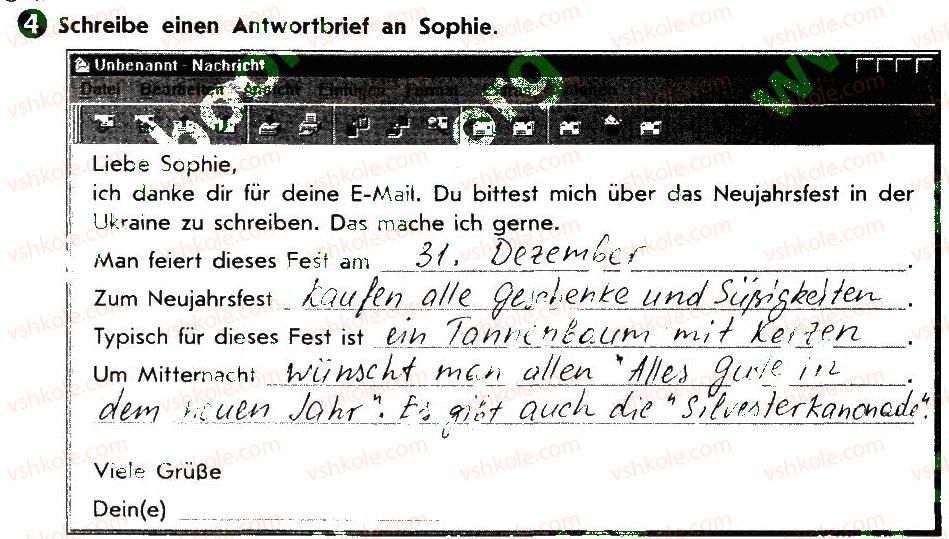 4 Schreibe einen Antwortbrief an Sophie.
Unbenannt - Nachricht
Datei Bearbeiten Ansicht Einfügen Format
Liebe Sophie,
ich danke dir für deine E-Mail. Du bittest mich über das Neujahrsfest in der
Ukraine zu schreiben. Das mache ich gerne.
Man feiert dieses Fest am 31. Dezember.
Zum Neujahrsfest kaufen alle Geschenke und Süßigkeiten.
Typisch für dieses Fest ist ein Tannenbaum mit Kerzen.
Um Mitternacht wünscht man allen "Alles Gute in
dem neuen Jahr". Es gibt auch die "Silvesterkanonade".
Viele Grüße
Dein(e)